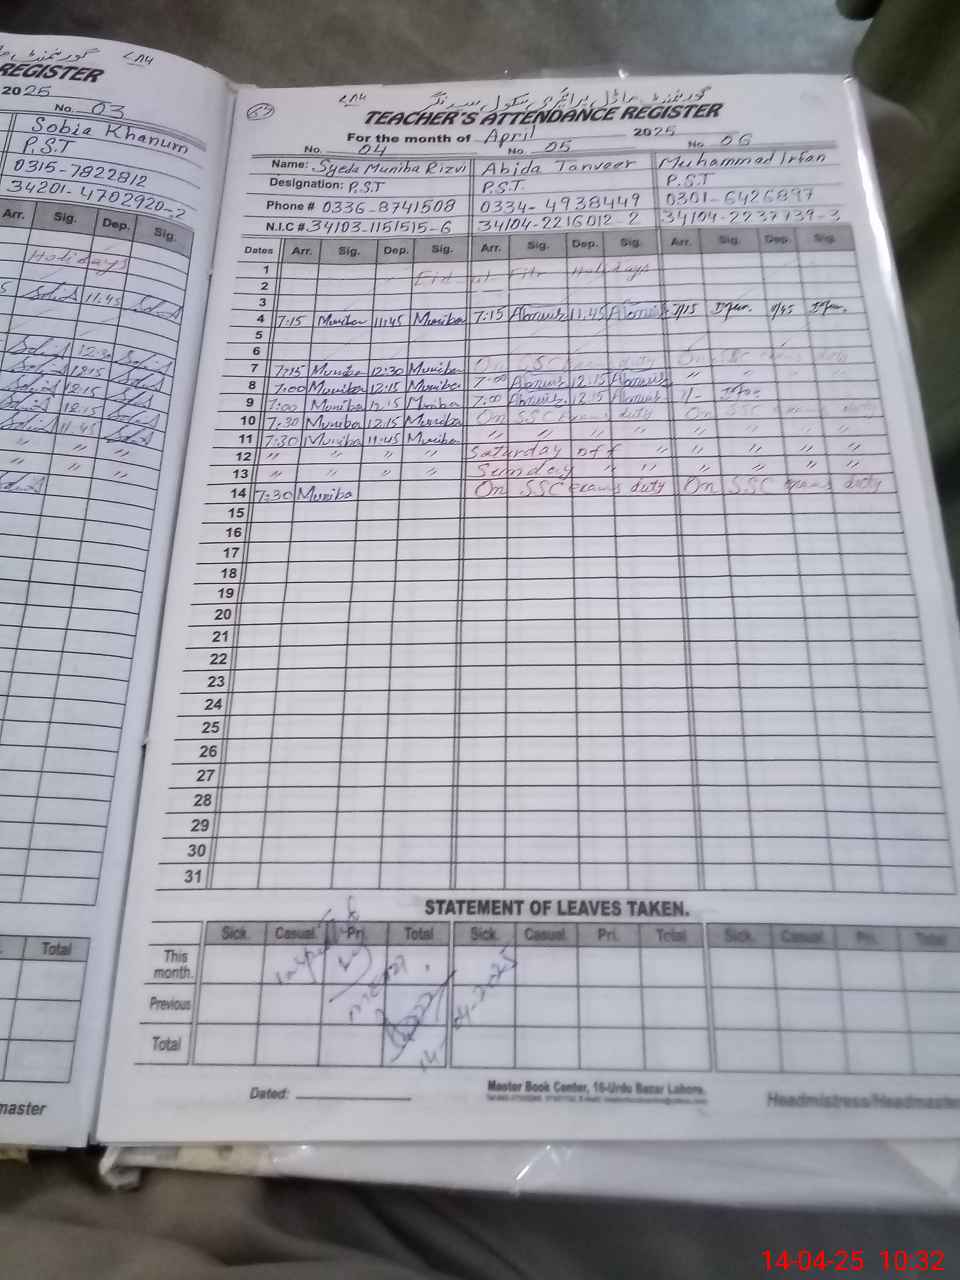 REGISTER
2025
No. 03
Sobia Khanum
P.S.T
0315-7822812
34201-4702920-2
Arr. Sig. Dep. Sig.
Holidays
11:45
12:30
12:15
12:15
12:15
11:45
Total
master
گورنمنٹ ماڈل پرائمری سکول
TEACHER'S ATTENDANCE REGISTER
For the month of April 2025
No. 04 No. 05 No. 06
Name: Syeda Muniba Rizvi Abida Tanveer Muhammad Irfan
Designation: P.S.T P.S.T. P.S.T
Phone # 0336-8741508 0334-4938449 0301-6426897
N.I.C # 34103-1151515-6 34104-2216012-2 34104-2237139-3
Dates Arr. Sig. Dep. Sig. Arr. Sig. Dep. Sig. Arr. Sig. Dep. Sig.
1 Eid ul Fitr Holidays
2
3
4 7:15 Muniba 11:45 Muniba 7:15 11:45 7/15 11/45
5
6
7 7:15 Muniba 12:30 Muniba On SSC exams duty On SSC exams duty
8 7:00 Muniba 12:15 Muniba 7:00 12:15 " " " "
9 7:00 Muniba 12:15 Muniba 7:00 12:15 7/-
10 7:30 Muniba 12:15 Muniba On SSC exams duty On SSC exams duty
11 7:30 Muniba 11:45 Muniba " " " " " " " "
12 " " " " Saturday off " " " " "
13 " " " " Sunday " " " " " "
14 7:30 Muniba On SSC exams duty On SSC exams duty
15
16
17
18
19
20
21
22
23
24
25
26
27
28
29
30
31
STATEMENT OF LEAVES TAKEN.
Sick. Casual. Pri. Total Sick. Casual. Pri. Total Sick. Casual. Pri. Total
This month.
Previous
Total
14-04-2025
Dated:
Master Book Center, 16-Urdu Bazar Lahore.
Headmistress/Headmaster
14-04-25 10:32